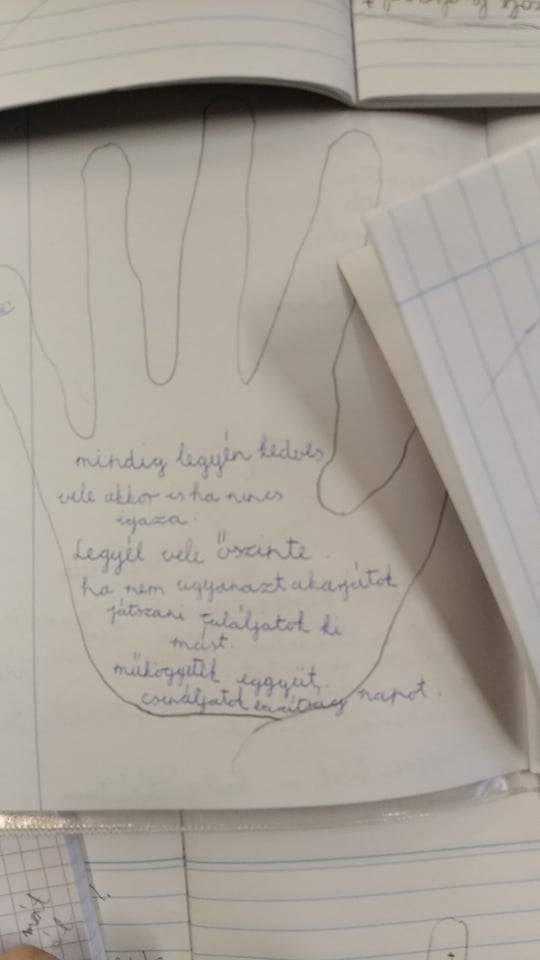 mindig legyén kedves
vele akkor is ha nincs
igaza.
Legyél vele őszinte.
ha nem ugyanazt akarjátok
játszani találjatok ki
mást.
működjetek eggyüt.
csináljatok barátság napot.